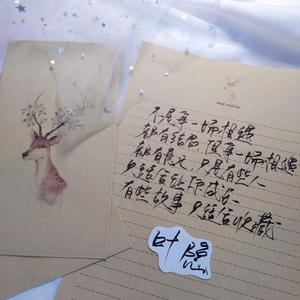 不是每一场相遇
都有结局 但每一场相遇
都有意义,只是有些人
只适合让你成长
有些故事 只适合收藏
叶